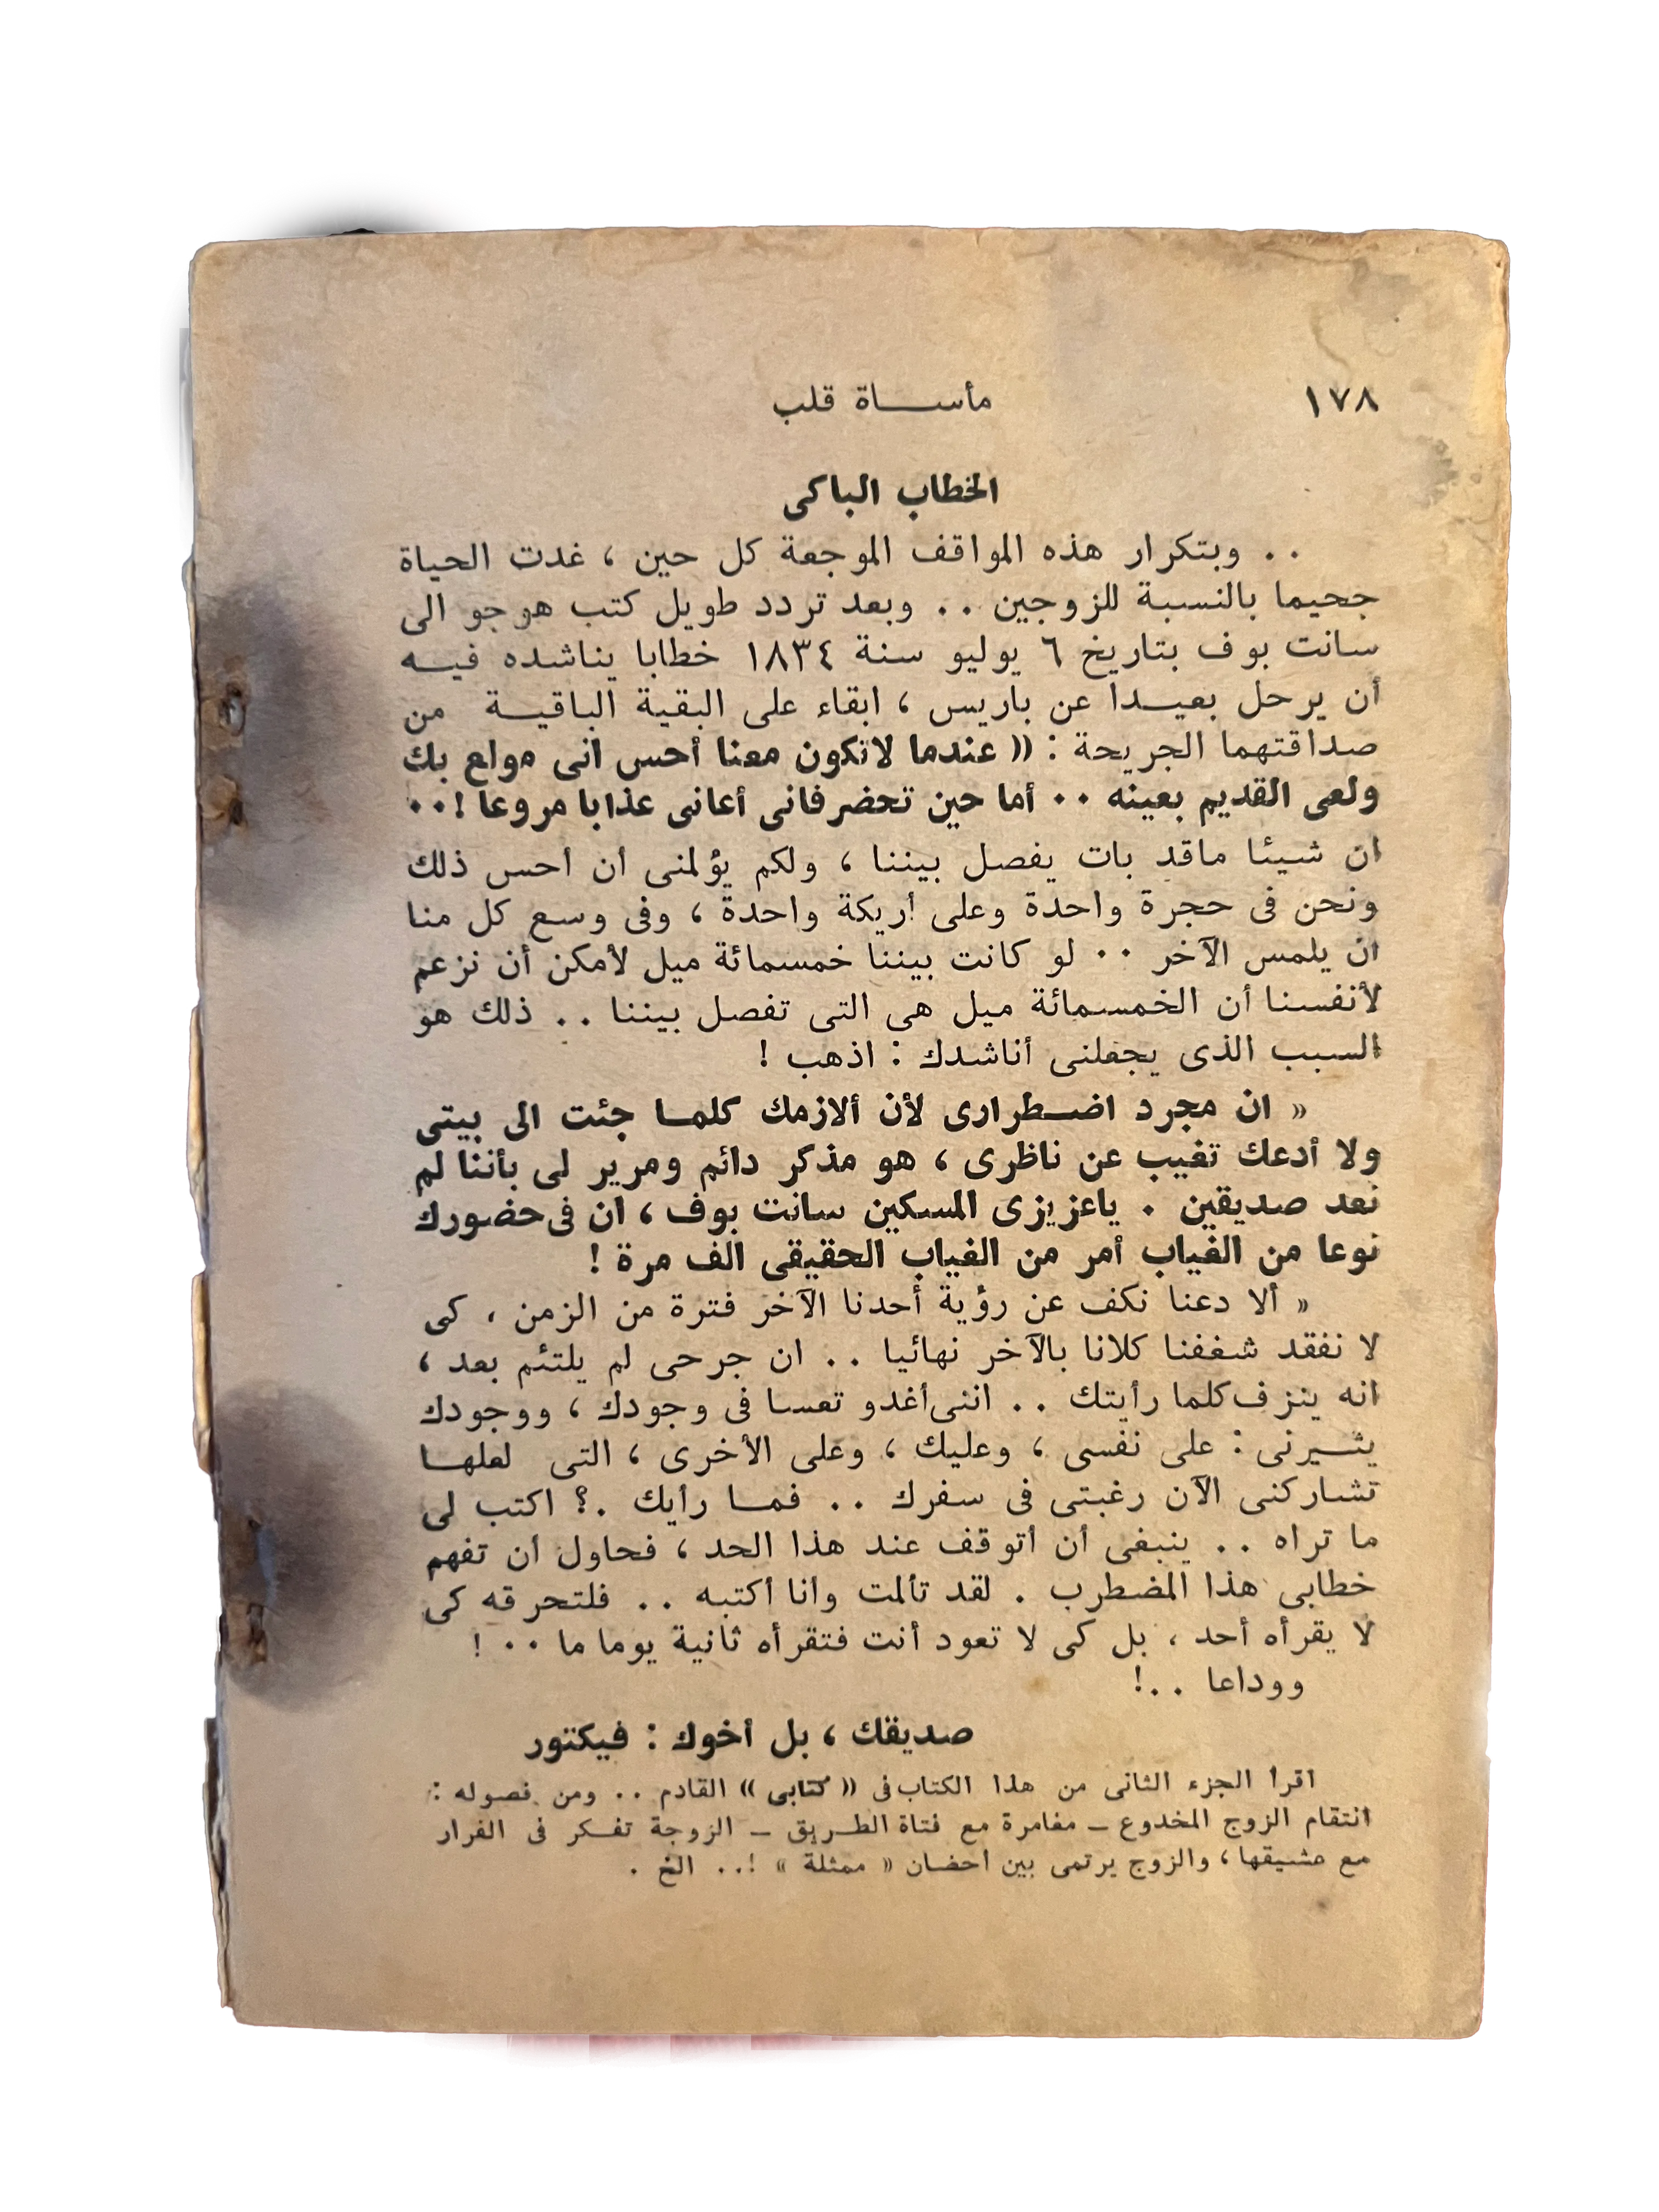 ١٧٨
مأساة قلب
الخطاب الباكى
. . وبتكرار هذه المواقف الموجعة كل حين ، غدت الحياة
جحيما بالنسبة للزوجين . . وبعد تردد طويل كتب هوجو الى
سانت بوف بتاريخ ٦ يوليو سنة ١٨٣٤ خطابا يناشده فيه
أن يرحل بعيدا عن باريس ، ابقاء على البقية الباقية من
صداقتهما الجريحة : « عندما لاتكون معنا أحس انى مولع بك
ولعى القديم بعينه . . أما حين تحضر فانى أعانى عذابا مروعا ! . .
ان شيئا ماقد بات يفصل بيننا ، ولكم يؤلمنى أن أحس ذلك
ونحن فى حجرة واحدة وعلى أريكة واحدة ، وفى وسع كل منا
ان يلمس الآخر . . لو كانت بيننا خمسمائة ميل لأمكن أن نزعم
لأنفسنا أن الخمسمائة ميل هى التى تفصل بيننا . . ذلك هو
السبب الذى يجعلنى أناشدك : اذهب !
« ان مجرد اضطرارى لأن ألازمك كلما جئت الى بيتى
ولا أدعك تغيب عن ناظرى ، هو مذكر دائم ومرير لى بأننا لم
نعد صديقين . ياعزيزى المسكين سانت بوف ، ان فى حضورك
نوعا من الغياب أمر من الغياب الحقيقى الف مرة !
« ألا دعنا نكف عن رؤية أحدنا الآخر فترة من الزمن ، كى
لا نفقد شغفنا كلانا بالآخر نهائيا . . ان جرحى لم يلتئم بعد ،
انه ينزف كلما رأيتك . . اننى أغدو تعسا فى وجودك ، ووجودك
يثيرنى : على نفسى ، وعليك ، وعلى الأخرى ، التى لعلها
تشاركنى الآن رغبتى فى سفرك . . فما رأيك .؟ اكتب لى
ما تراه . . ينبغى أن أتوقف عند هذا الحد ، فحاول أن تفهم
خطابى هذا المضطرب . لقد تألمت وأنا أكتبه . . فلتحرقه كى
لا يقرأه أحد ، بل كى لا تعود أنت فتقرأه ثانية يوما ما . . !
ووداعا . . !
صديقك ، بل أخوك : فيكتور
اقرأ الجزء الثانى من هذا الكتاب فى « كتابى » القادم . . ومن فصوله :
انتقام الزوج المخدوع – مغامرة مع فتاة الطريق – الزوجة تفكر فى الفرار
مع عشيقها ، والزوج يرتمى بين أحضان « ممثلة » ! . . الخ .